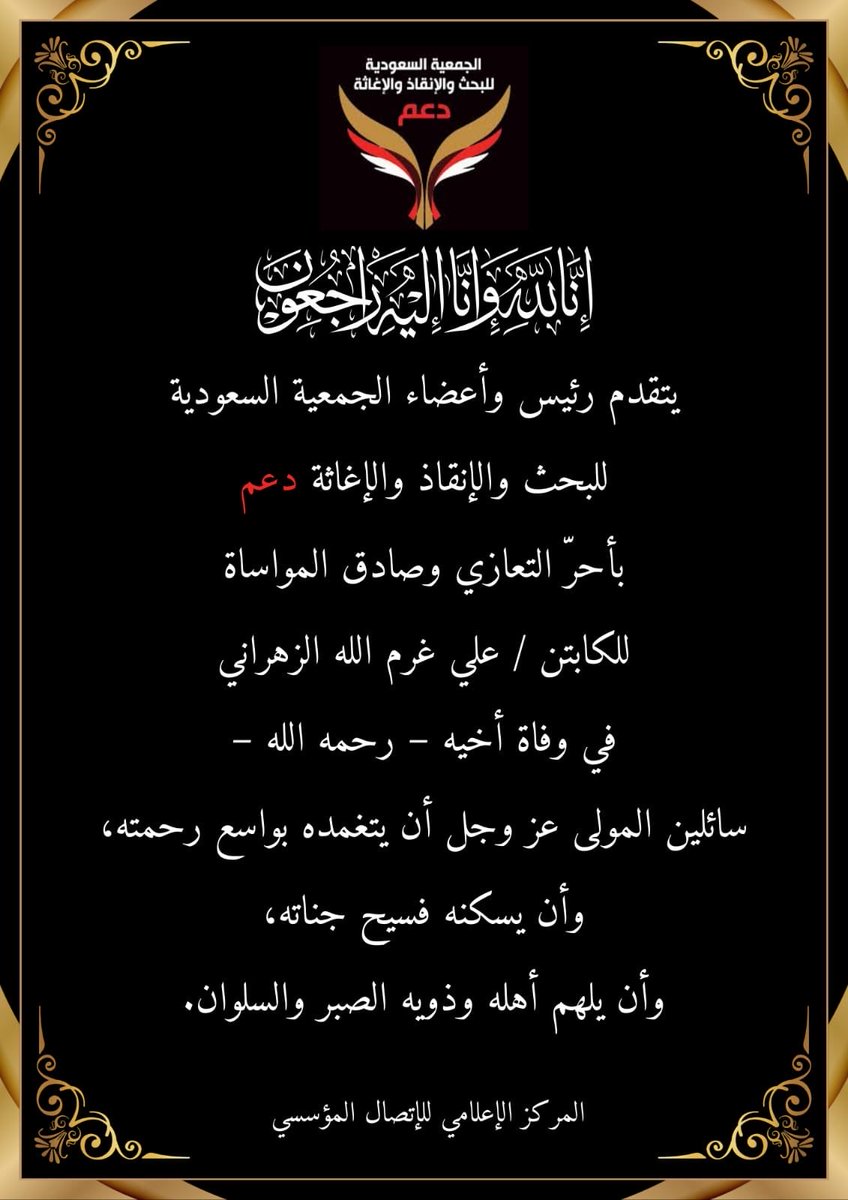 الجمعية السعودية
للبحث والإنقاذ والإغاثة
دعم
إِنَّا لِلَّهِ وَإِنَّا إِلَيْهِ رَاجِعُونَ
يتقدم رئيس وأعضاء الجمعية السعودية
للبحث والإنقاذ والإغاثة دعم
بأحرّ التعازي وصادق المواساة
للكابتن / علي غرم الله الزهراني
في وفاة أخيه – رحمه الله –
سائلين المولى عز وجل أن يتغمده بواسع رحمته،
وأن يسكنه فسيح جناته،
وأن يلهم أهله وذويه الصبر والسلوان.
المركز الإعلامي للإتصال المؤسسي